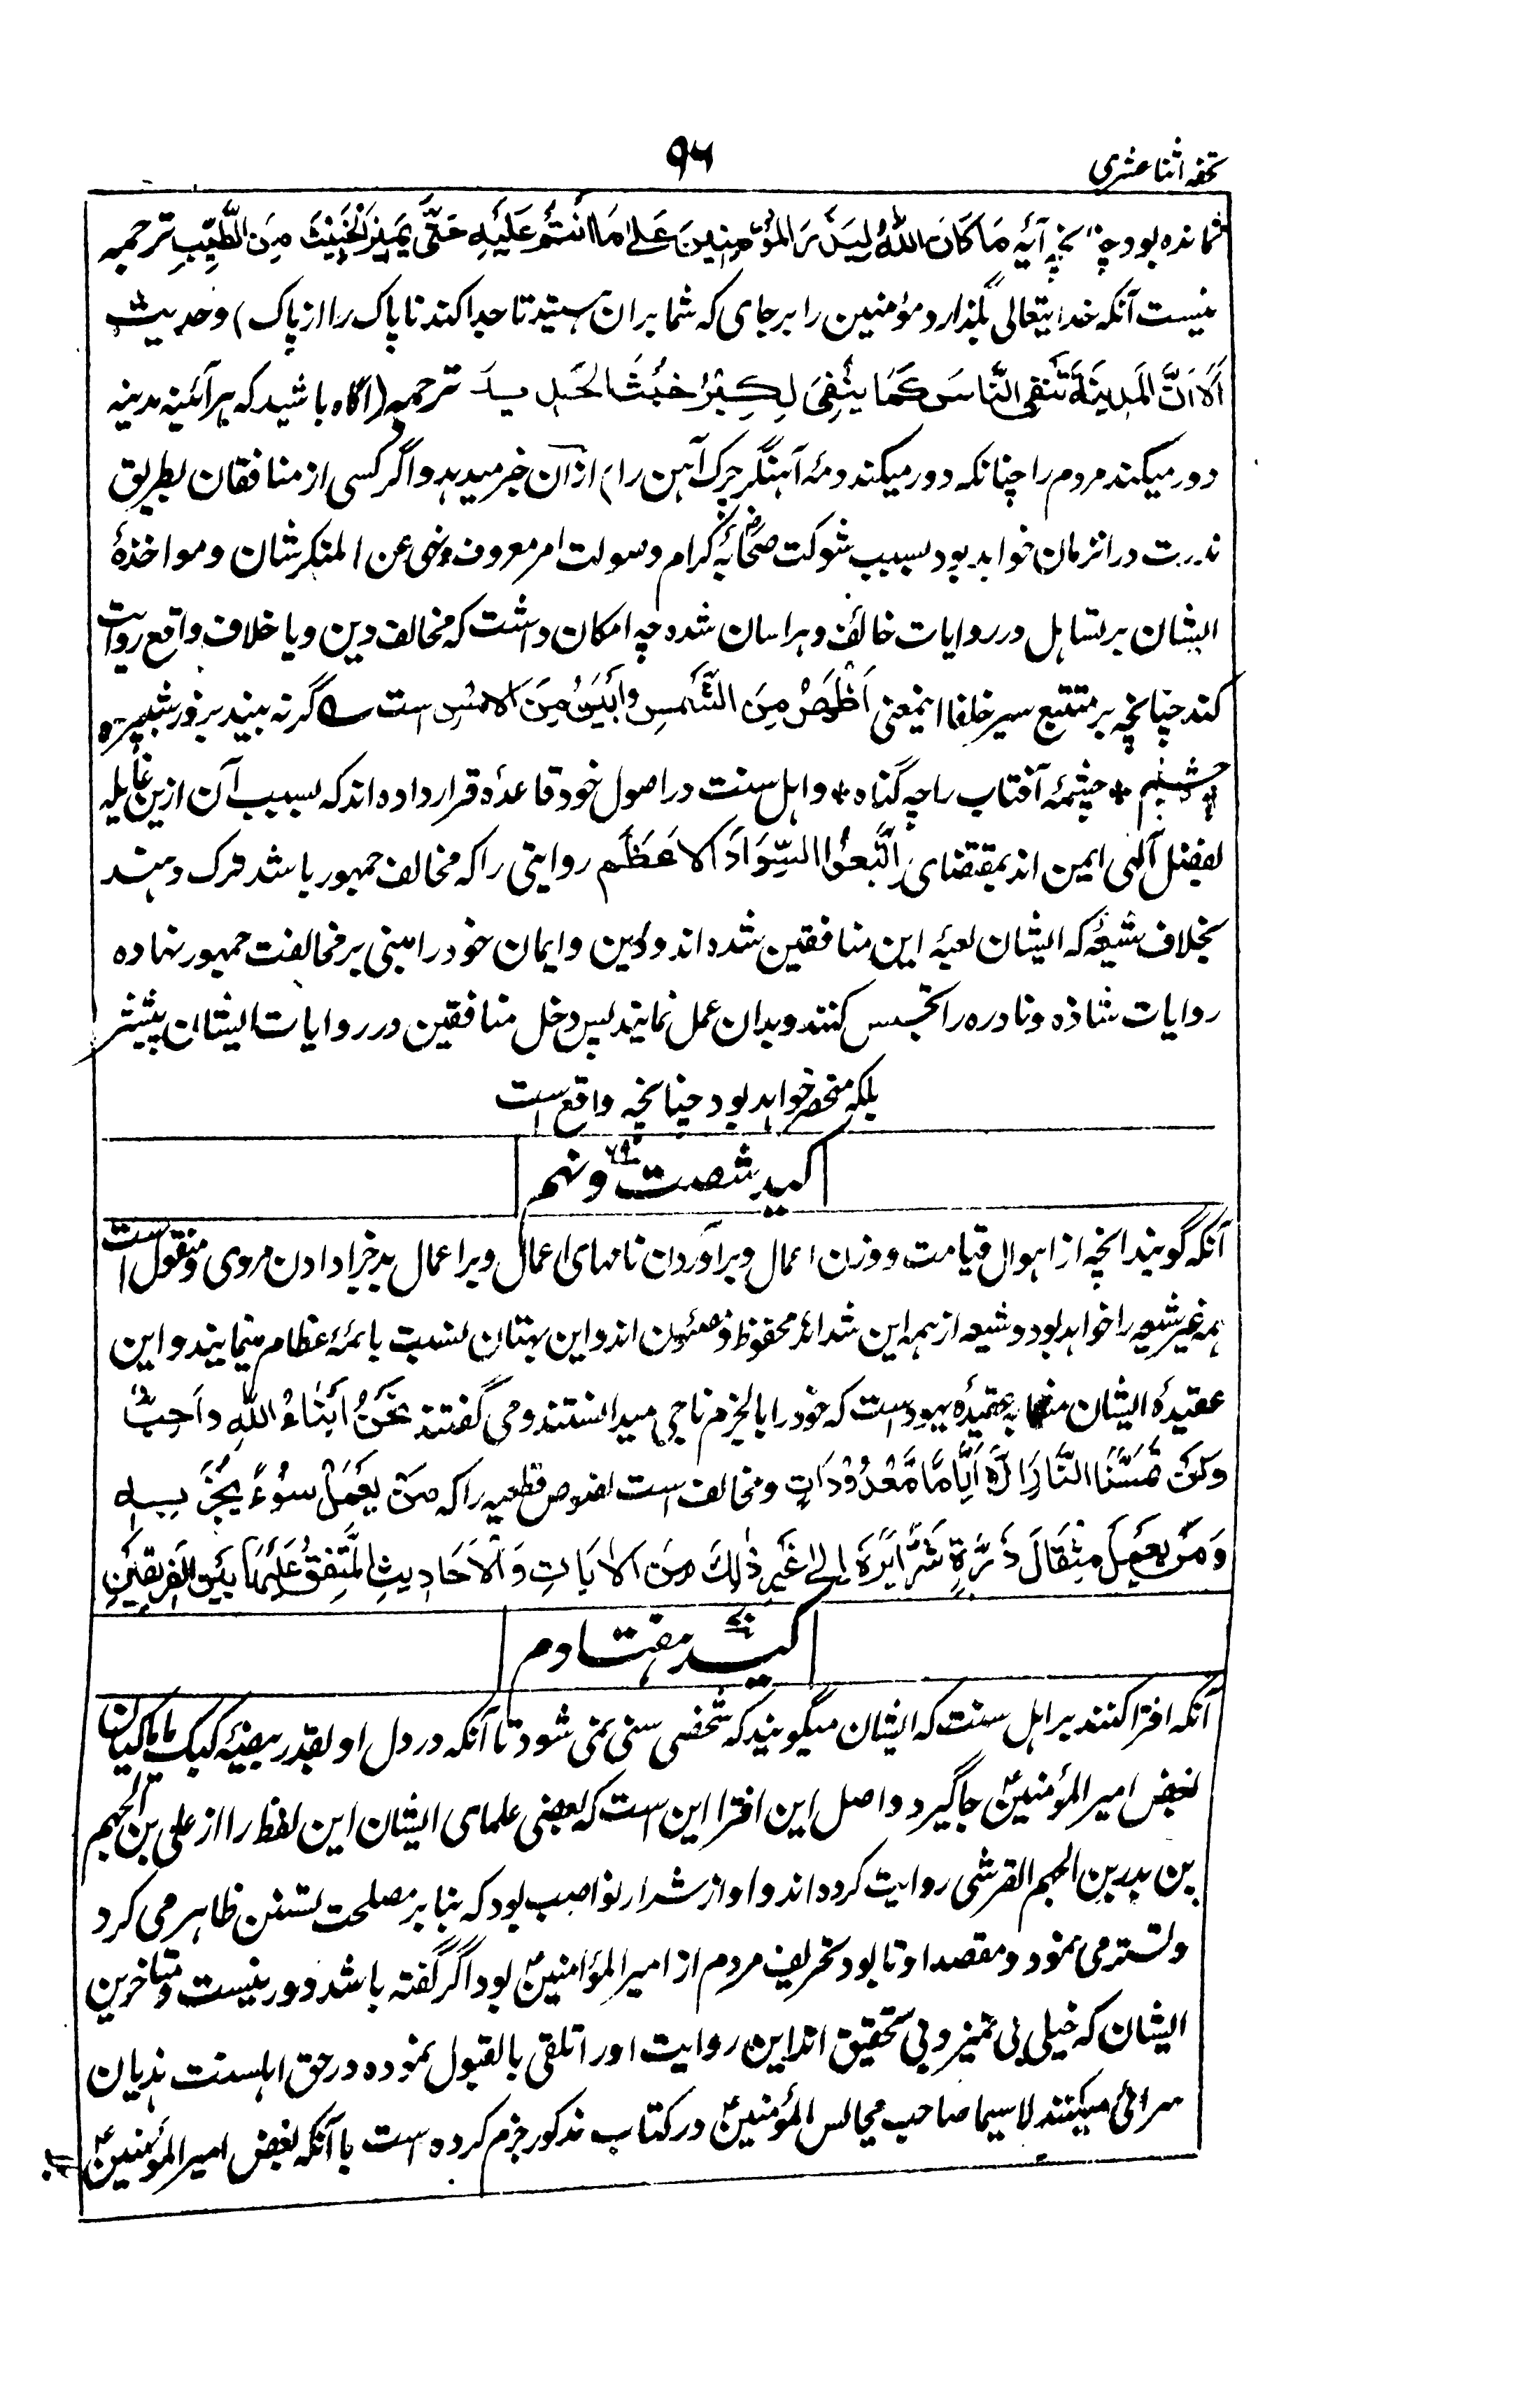 تحفه اثنا عشری
۹۶
نمانده بود چنانچه آیه مَا کَانَ اللهُ لِیَذَرَ المُؤمِنِینَ عَلٰی مَا اَنتُم عَلَیهِ حَتّٰی یَمِیزَ الخَبِیثَ مِنَ الطَّیِّبِ ترجمه
نیست آنکه خدایتعالی بگذارد مؤمنین را بر جای که شما بران هستید تا جدا کند ناپاک را از پاک) و حدیث
اَلَا اَنَّ المَدِینَةَ تَنفِی النَّاسَ کَمَا یَنفِی الکِیرُ خَبَثَ الحَدِیدِ ترجمه (آگاه باشید که هرآئینه مدینه
دور میکند مردم را چنانکه دور میکند دمهٔ آهنگر چرک آهن را) ازان خبر میدهد و اگر کسی از منافقان بطریق
ندرت درانزمان خواهد بود بسبب شوکت صحابهٔ کرام و صولت امر معروف و نهی عن المنکر شان و مواخذهٔ
ایشان بر تساهل در روایات خائف و هراسان شده چه امکان داشت که مخالف دین و یا خلاف واقع روایت
کند چنانچه بر متتبع سیر خلفا اینمعنی اَظهَرُ مِنَ الشَّمسِ وَ اَبیَنُ مِنَ الاَمسِ است ؎ گر نه بیند بروز شپره
چشم * چشمهٔ آفتاب را چه گناه * و اهل سنت در اصول خود قاعده قرار داده اند که بسبب آن ازین غایله
بفضل آلهی ایمن اند بمقتضای اِتَّبِعُوا السَّوَادَ الاَعظَم روایتی را که مخالف جمهور باشد ترک دهند
بخلاف شیعه که ایشان لعبهٔ این منافقین شده اند و دین و ایمان خود را مبنی بر مخالفت جمهور نهاده
روایات شاذه و نادره را تجسس کنند و بدان عمل نمایند پس دخل منافقین در روایات ایشان بیشتر
بلکه منحصر خواهد بود چنانچه واقع است
کید شصت و نهم ۶۹
آنکه گویند آنچه از اهوال قیامت و وزن اعمال و برآوردن نامهای اعمال و بر اعمال بد جزا دادن مروی و منقول است
همه غیر شیعه را خواهد بود و شیعه از همه این شدائد محفوظ و مصئون اند و این بهتان نسبت بائمهٔ عظام مینمایند و این
عقیدهٔ ایشان مشابه عقیدهٔ یهود است که خود را بالجزم ناجی میدانستند و می گفتند نَحنُ اَبنَاءُ اللهِ وَ اَحِبَّاؤُهُ
وَ لَن تَمَسَّنَا النَّارُ اِلَّا اَیَّامًا مَّعدُودَاتٍ و مخالف است نصوص قطعیه را که مَن یَعمَل سُوءً یُجزَ بِهِ
وَ مَن یَعمَل مِثقَالَ ذَرَّةٍ شَرًّا یَرَهُ اِلٰی غَیرِ ذٰلِکَ مِنَ الاٰیَاتِ وَ الاَحَادِیثِ المُتَّفَقِ عَلَیهَا بَینَ الفَرِیقَینِ
کید هفتادم ۷۰
آنکه افترا کنند بر اهل سنت که ایشان میگویند که شخصی سنی نمی شود تا آنکه در دل او بقدر بیضهٔ کبک یا ماکیان
بغض امیر المؤمنین جا گیرد و اصل این افترا این است که بعضی علمای ایشان این لفظ را از علی بن الجهم
بن بدر بن الجهم القرشی روایت کرده اند و او از شرار نواصب بود که بنا بر مصلحت تسنن ظاهر می کرد
و تستر می نمود و مقصد او تا بود تحریف مردم از امیر المؤمنین بود اگر گفته باشد دور نیست و متاخرین
ایشان که خیلی بی تمیز و بی تحقیق اند این روایت او را تلقی بالقبول نموده در حق اهلسنت هذیان
سرائی میکنند لاسیما صاحب مجالس المؤمنین در کتاب مذکور جزم کرده است با آنکه بغض امیر المؤمنین